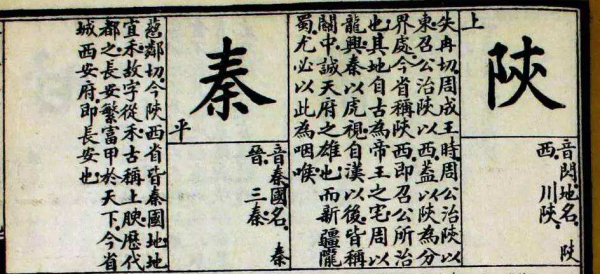 上
陝
音閃。地名。陝
西。川陝。
失冉切周成王時周公治陝以
東召公治陝以西。蓋以陝為分
界處。今省稱陝西。即召公所治
也。其地自古為帝王之宅。周以
龍興秦以虎視自漢以後皆稱
關中。誠天府之雄也。而新疆隴
蜀。尤必以此為咽喉。
平
秦
音秦。國名。秦
晉。三秦。
慈鄰切。今陝西省皆秦國地。地
宜禾故字從禾。古稱上腴。歷代
都之長安。繁富甲於天下。今省
城西安府。即長安也。